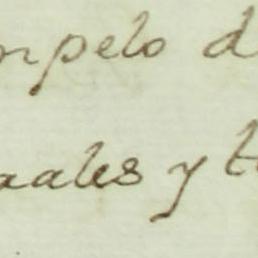 npelo d
aales y t